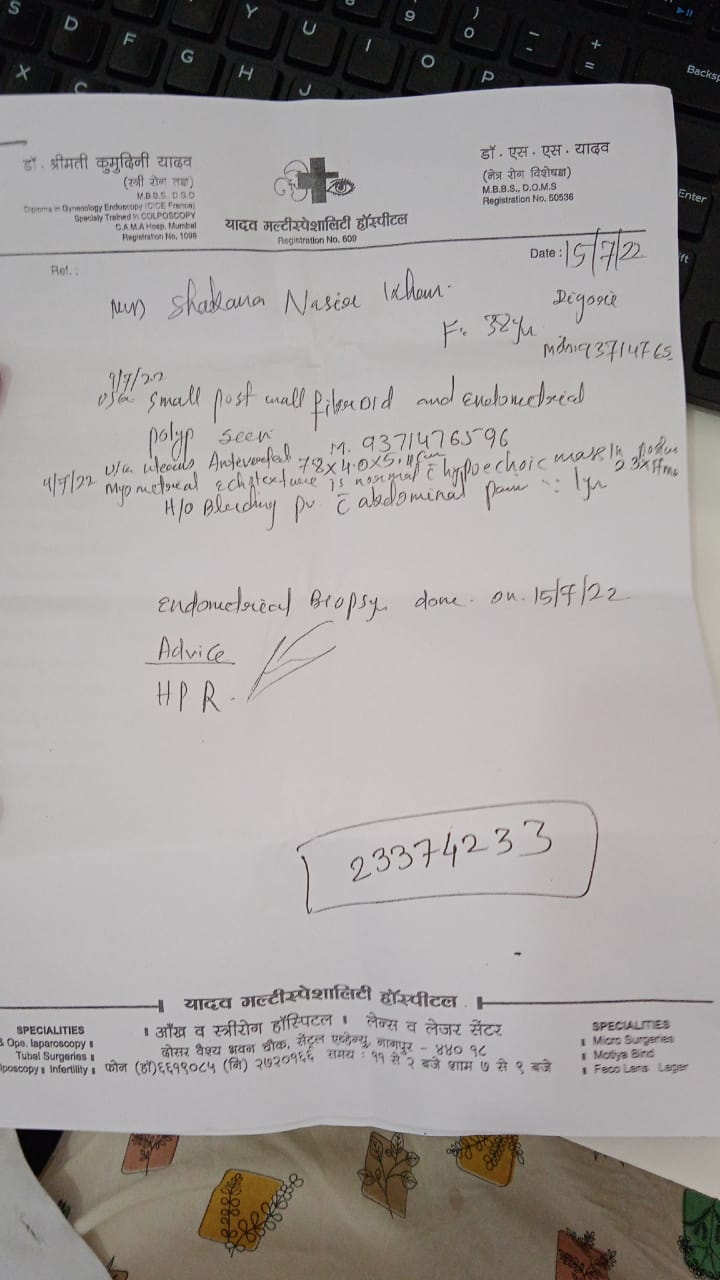 डॉ. श्रीमती कुमुदिनी यादव
(स्त्री रोग तज्ञ)
M.B.B.S. D.G.O
Diploma in Gynecology Endoscopy (CICE France)
Specialy Trained in COLPOSCOPY
C.A.M.A Hosp. Mumbai
Registration No. 1098
यादव मल्टीस्पेशालिटी हॉस्पीटल
Registration No. 609
डॉ. एस. एस. यादव
(नेत्र रोग विशेषज्ञ)
M.B.B.S., D.O.M.S
Registration No. 50536
Ref. :
Date : 15/7/22
Nasir Khan.
F. 38yr
9/7/22
usg small post wall fibroid and endometrial
polyp seen
M. 9371476596
4/7/22 uterus Anteverted
Myometrial echotexture is normal c̄ hypoechoic mass in
H/O Bleeding pv c̄ abdominal pain :: 1yr
Endometrial Biopsy done on 15/7/22
Advice
HPR.
23374233
यादव मल्टीस्पेशालिटी हॉस्पीटल
। आँख व स्त्रीरोग हॉस्पिटल । लेन्स व लेजर सेंटर
दोसर वैश्य भवन चौक, सेंट्रल एव्हेन्यू, नागपूर - ४४० १८
फोन (हॉ)६६१९०८५ (नि) २७२०१६६ समय : ११ से २ बजे शाम ७ से ९ बजे
SPECIALITIES
Ope. laparoscopy
Tubal Surgeries
Infertility
SPECIALITIES
Micro Surgeries
Motiya Bind
Feco Lens Leger